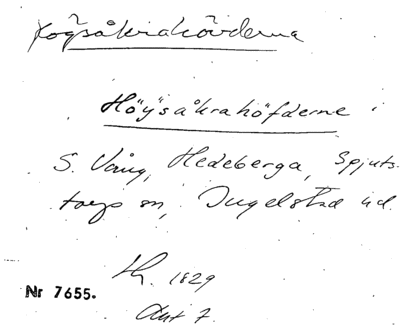 Högsåkrahövderna
Höÿsåkrahöfderne i
S. Vång, Hedeberga, Spjuts-
torps sn, Ingelstad hd.
Lh. 1829
Nr 7655.
Akt 7.